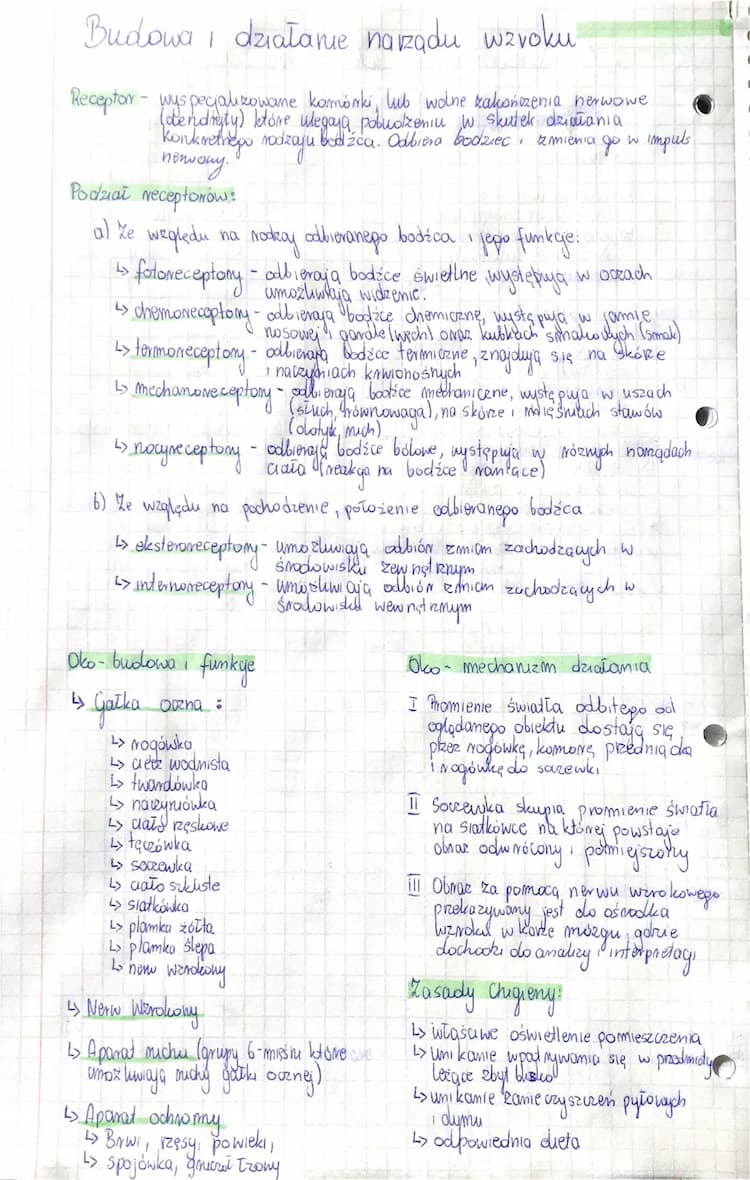 Budowa i działanie narządu wzroku
Receptor - wyspecjalizowane komórki, lub wolne zakończenia nerwowe
(dendryty) które ulegają pobudzeniu w skutek działania
konkretnego rodzaju bodźca. Odbiera bodziec i zmienia go w impuls
nerwowy.
Podział receptorów:
a) Ze względu na rodzaj odbieranego bodźca i jego funkcje:
↳ fotoreceptory - odbierają bodźce świetlne, występują w oczach
umożliwiają widzenie.
↳ chemoreceptory - odbierają bodźce chemiczne, występują w jamie
nosowej i gardle (węch) oraz kubkach smakowych (smak)
↳ termoreceptory - odbierają bodźce termiczne, znajdują się na skórze
i naczyniach krwionośnych
↳ mechanoreceptory - odbierają bodźce mechaniczne, występują w uszach
(słuch, równowaga), na skórze i mięśniach stawów
(dotyk, ruch)
↳ nocyreceptory - odbierają bodźce bólowe, występują w różnych narządach
ciała (reakcja na bodźce raniące)
b) Ze względu na pochodzenie, położenie odbieranego bodźca
↳ eksteroreceptory - umożliwiają odbiór zmian zachodzących w
środowisku zewnętrznym
↳ interoreceptory - umożliwiają odbiór zmian zachodzących w
środowisku wewnętrznym
Oko - budowa i funkcje
↳ Gałka oczna :
↳ rogówka
↳ ciecz wodnista
↳ twardówka
↳ naczyniówka
↳ ciało rzęskowe
↳ tęczówka
↳ soczewka
↳ ciało szkliste
↳ siatkówka
↳ plamka żółta
↳ plamka ślepa
↳ nerw wzrokowy
↳ Nerw Wzrokowy
↳ Aparat ruchu (grupy 6-mięśni które
umożliwiają ruchy gałki ocznej)
↳ Aparat ochronny
↳ Brwi, rzęsy, powieki,
↳ spojówka, gruczoł łzowy
Oko - mechanizm działania
I Promienie światła odbitego od
oglądanego obiektu dostają się
przez rogówkę, komorę przednią oka
i rogówkę do soczewki
II Soczewka skupia promienie światła
na siatkówce na której powstaje
obraz odwrócony i pomiejszony
III Obraz za pomocą nerwu wzrokowego
przekazywany jest do ośrodka
wzroku w korze mózgu, gdzie
dochodzi do analizy i interpretacji
Zasady Chigieny:
↳ właściwe oświetlenie pomieszczenia
↳ unikanie wpatrywania się w przedmioty
leżące zbyt blisko
↳ unikanie zanieczyszczeń pyłowych
i dymu
↳ odpowiednia dieta